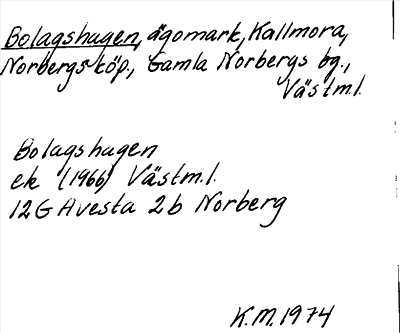 Bolagshagen, ägomark, Kallmora,
Norbergs köp., Gamla Norbergs bg.,
Västm.l.
Bolagshagen
ek (1966) Västm.l.
12G Avesta 2b Norberg
K.M. 1974